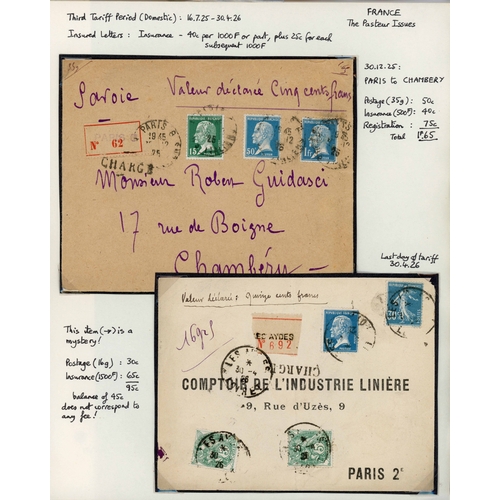 Third Tariff Period (Domestic) : 16.7.25 - 30.4.26
Insured Letters : Insurance - 40c per 1000F or part, plus 25c for each
subsequent 1000F
FRANCE
The Pasteur Issues
30.12.25 :
PARIS to CHAMBERY
Postage (35g) : 50c
Insurance (500F) : 40c
Registration : 75c
Total 1F65
Savoie
Valeur déclarée Cinq cents francs
PARIS
N° 62
CHARGÉ
15c
50c
Monsieur Robert Guidasci
17 rue de Boigne
Chambéry
Last day of tariff
30.4.26
Valeur déclarée : quinze cents francs
16925
LES AYDES
N° 692
CHARGÉ
COMPTOIR DE L'INDUSTRIE LINIÈRE
9, Rue d'Uzès, 9
PARIS 2e
This item (→) is a
mystery!
Postage (16g) : 30c
Insurance (1500F) : 65c
95c
balance of 45c
does not correspond to
any fee!